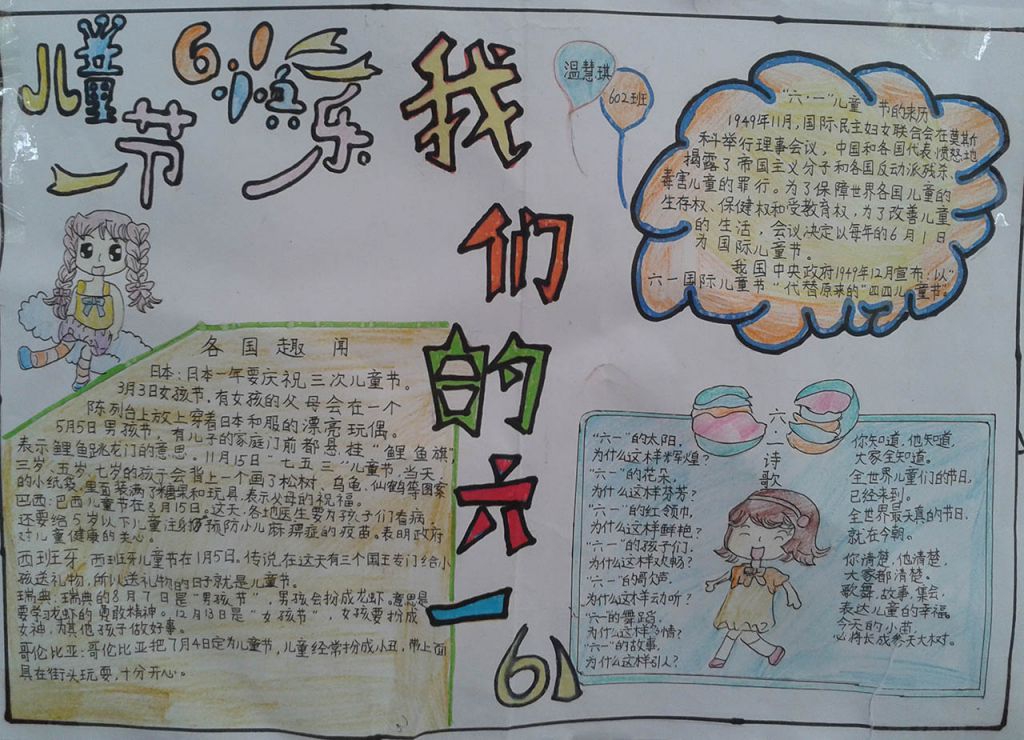 儿童
节
6.1快
乐
我们的六一
温慧琪
602班
"六·一"儿童节的来历
1949年11月,国际民主妇女联合会在莫斯
科举行理事会议,中国和各国代表愤怒地
揭露了帝国主义分子和各国反动派残杀、
毒害儿童的罪行。为了保障世界各国儿童的
生存权、保健权和受教育权,为了改善儿童
的生活,会议决定以每年的6月1日
为国际儿童节。
我国中央政府1949年12月宣布:以"
六一国际儿童节"代替原来的"四四儿童节"
各国趣闻
日本:日本一年要庆祝三次儿童节。
3月3日女孩节,有女孩的父母会在一个
陈列台上放上穿着日本和服的漂亮玩偶。
5月5日男孩节,有儿子的家庭门前都悬挂"鲤鱼旗"
表示鲤鱼跳龙门的意思。11月15日"七五三"儿童节,当天
三岁、五岁、七岁的孩子会背上一个画了松树、乌龟、仙鹤等图案
的小纸袋,里面装满了糖果和玩具,表示父母的祝福。
巴西:巴西儿童节在8月15日。这天,各地医生要为孩子们看病,
还要给5岁以下儿童注射预防小儿麻痹症的疫苗。表明政府
对儿童健康的关心。
西班牙:西班牙儿童节在1月5日。传说,在这天有三个国王专门给小
孩送礼物,所以送礼物的日子就是儿童节。
瑞典:瑞典的8月7日是"男孩节",男孩会扮成龙虾。意思是
要学习龙虾的勇敢精神。12月13日是"女孩节",女孩要扮成
女神,为其他孩子做好事。
哥伦比亚:哥伦比亚把7月4日定为儿童节,儿童经常扮成小丑,带上面
具在街头玩耍,十分开心。
六一诗歌
"六一"的太阳,
为什么这样辉煌?
"六一"的花朵,
为什么这样芬芳?
"六一"的红领巾,
为什么这样鲜艳?
"六一"的孩子们,
为什么这样欢畅?
"六一"的歌声,
为什么这样动听?
"六一"的舞蹈,
为什么这样多情?
"六一"的故事,
为什么这样引人?
你知道,他知道,
大家全知道。
全世界儿童们的节日,
已经来到。
全世界最天真的节日,
就在今朝。
你清楚,他清楚,
大家都清楚。
歌舞,故事,集会,
表达儿童的幸福。
今天的小苗,
必将长成参天大树。
61